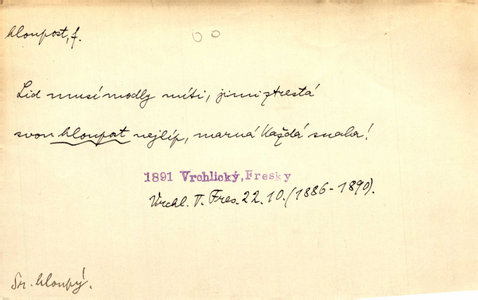 hloupost, f.
Lid musí modly míti, jimi ztrestá
svou hloupost nejlíp, marná každá snaha!
1891 Vrchlický, Fresky
Vrchl. V. Fres. 22. 10. (1886-1890).
Sr. hloupý.